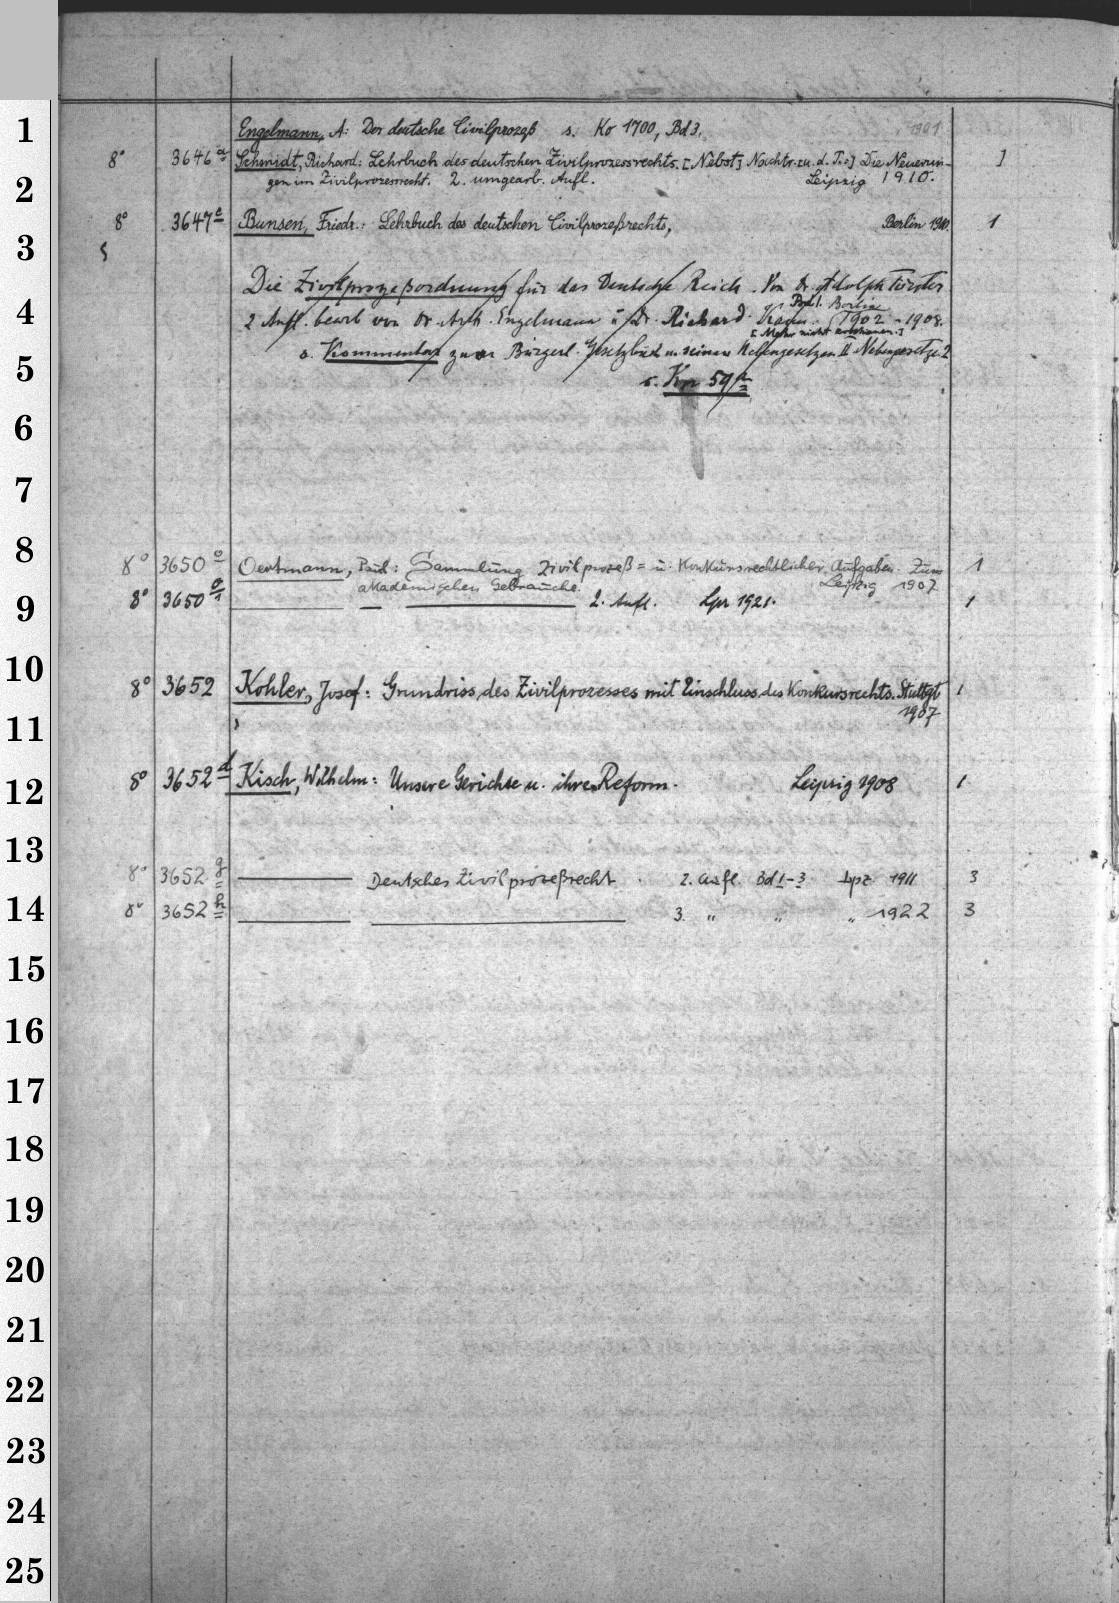 1
Engelmann, A: Der deutsche Civilprozeß s. Ko 1700, Bd 3. 1901
8° 3646 a Schmidt, Richard: Lehrbuch des deutschen Zivilprozessrechts. [Nebst] Nachtr. zu. d. T.:] Die Neuerun- 1
2
gen im Zivilprozessrecht. 2. umgearb. Aufl. Leipzig 1910.
8° 3647 e Bunsen, Friedr.: Lehrbuch des deutschen Civilprozeßrechts, Berlin 1900. 1
3
Die Zivilprozeßordnung für das Deutsche Reich. Von Dr. Adolph Förster
Bd 1. Berlin
4
2 Aufl. bearb von Dr. Arth. Engelmann u Dr. Richard 1902 - 1908.
[Mehr nicht erschienen.]
s. Kommentar zum Bürgerl. Gesetzbuch u. seinen Nebengesetzen II Nebengesetze 2
5
s. Kn 59
6
7
8
8° 3650 Oertmann, Paul: Sammlung Zivilprozeß= u. Konkursrechtlicher Aufgaben. Zum 1
akademischen Gebrauche. Leipzig 1907
9
8° 3650 — 2. Aufl. Lpz 1921. 1
10
8° 3652 Kohler, Josef: Grundriss des Zivilprozesses mit Einschluss des Konkursrechts. Stuttgt 1
1907
11
8° 3652 d Kisch, Wilhelm: Unsere Gerichte u. ihre Reform. Leipzig 1908 1
12
13
8° 3652 g — Deutsches Zivilprozeßrecht. 2. Aufl. Bd 1-3 Lpz 1911 3
14
8° 3652 h — 3. " " " 1922 3
15
16
17
18
19
20
21
22
23
24
25